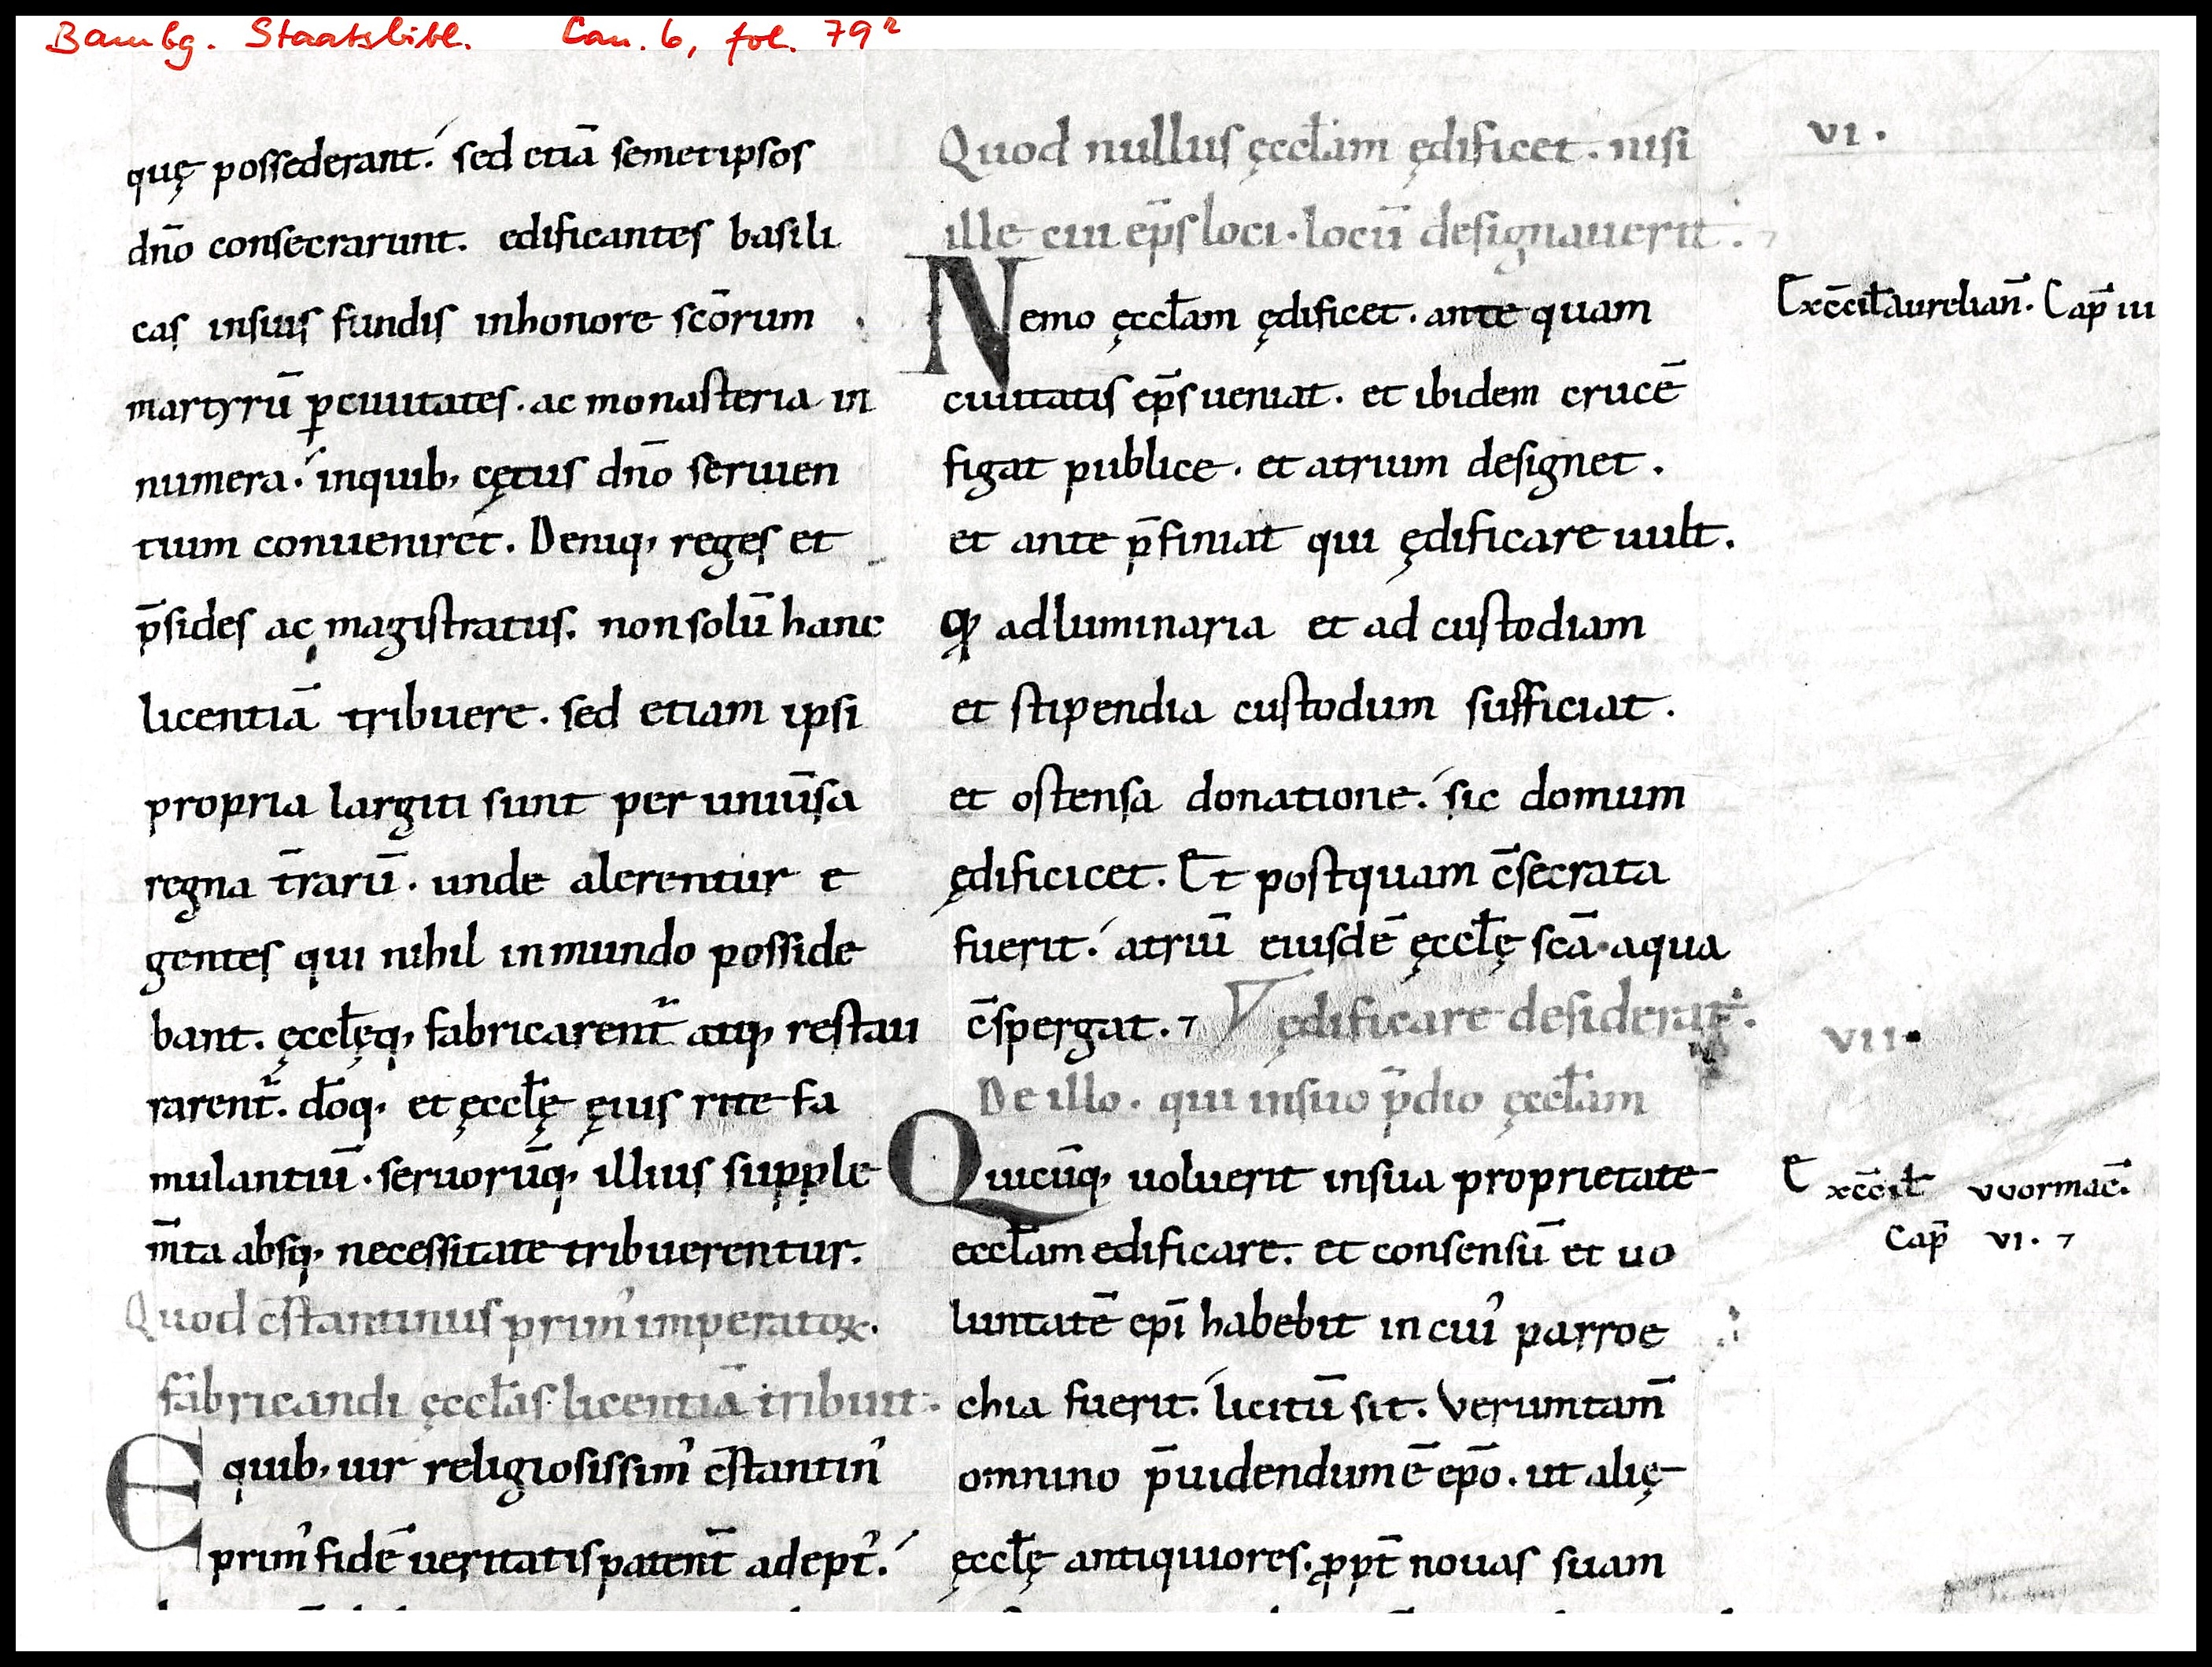 Bambg. Staatsbibl. Can. 6, fol. 79r
quę possederant. sed etiā semetipsos
dn̄o consecrarunt. edificantes basili
cas insuis fundis inhonore sc̄orum
martyrū ꝑ ciuitates. ac monasteria in
numera. inquib; cętus dn̄o seruien
tium conueniret. Deniq; reges et
p̄sides ac magistratus. non solū hanc
licentiā tribuere. sed etiam ipsi
propria largiti sunt per uniūsa
regna t̄rarū. unde alerentur e
gentes qui nihil inmundo posside
bant. ęccl̄ęq; fabricarent̄ atq; restau
rarent̄. d̄oq; et ęccl̄ę ęius rite fa
mulantiū. seruorūq; illius supple
m̄ta absq; necessitate tribuerentur.
Quod c̄stantinus prim᾽ imperator.
fabricandi ęccl̄as licentiā tribuit.
E quib; uir religiosissim᾽ c̄stantin᾽
prim᾽ fidē ueritatis patent̄ adept᾽.
Quod nullus ęccl̄am ędificet. nisi
ille cui ep̄s loci. locū designauerit.
VI.
Nemo ęccl̄am ędificet. ante quam
Exc̄cil̄ aurelian̄. Cap̄ III
ciuitatis ep̄s ueniat. et ibidem crucē
figat publice. et atrium designet.
et ante p̄finiat qui ędificare uult.
ꝙ adluminaria et ad custodiam
et stipendia custodum sufficiat.
et ostensa donatione. sic domum
ędificicet. Et postquam c̄secrata
fuerit. atriū eiusdē ęccl̄ę sc̄a aqua
c̄spergat. ędificare desiderat.
VII.
De illo. qui insuo p̄dio ęccl̄am
Quicūq; uoluerit insua proprietate
Exc̄cil̄ vvormac̄.
eccl̄am edificare. et consensū et uo
Cap̄ VI.
luntatē ep̄i habebit in cui᾽ parroe
chia fuerit. licitū sit. Veruntam̄
omnino p̄uidendum ē ep̄o. ut alię
ęccl̄ę antiquiores. ꝓpt̄ nouas suam